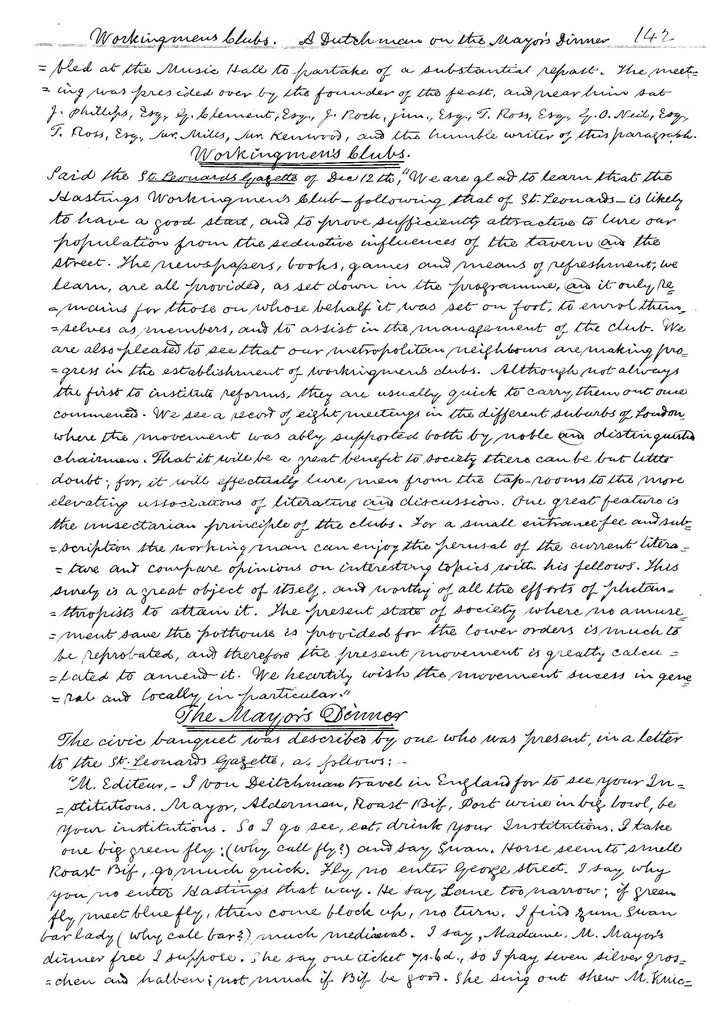 Workingmens Clubs. A Dutchman on the Mayor's Dinner 142
=bled at the Music Hall to partake of a substantial repast. The meet-
=ing was presided over by the founder of the feast, and near him sat
J. Phillips, Esq, G. Clement, Esq., J. Rock, jun., Esq, T. Ross, Esq, G.O. Neil, Esq,
T. Ross, Esq, Mr. Mills, Mr. Kenwood, and the humble writer of this paragraph.
Workingmen's Clubs.
Said the St. Leonards Gazette of Dec 12th, "We are glad to learn that the
Hastings Workingmen's Club – following that of St. Leonards – is likely
to have a good start, and to prove sufficiently attractive to lure our
population from the seductive influences of the tavern an the
street. The newspapers, books, games and means of refreshment, we
learn, are all provided, as set down in the programme, an it only re
=mains for those on whose behalf it was set on foot, to enrol them-
=selves as members, and to assist in the management of the club. We
are also pleased to see that our metropolitan neighbours are making pro-
=gress in the establishment of workingmen's clubs. Although not always
the first to institute reforms, they are usually quick to carry them out once
commenced. We see a record of eight meetings in the different suburbs of London,
where the movement was ably supported both by noble an distinguished
chairmen. That it will be a great benefit to society there can be but little
doubt; for, it will effectually lure men from the tap-rooms to the more
elevating associations of literature an discussion. One great feature is
the unsectarian principle of the clubs. For a small entrance fee and sub-
=scription the working man can enjoy the perusal of the current litera-
=ture and compare opinions on interesting topics with his fellows. This
surely is a great object of itself, and worthy of all the efforts of philan-
=thropists to attain it. The present state of society where no amuse-
=ment save the pothouse is provided for the lower orders is much to
be reprobated, and therefore the present movement is greatly calcu=
=lated to amend it. We heartily wish the movement sucess in gene
=ral and locally in particular."
The Mayor's Dinner
The civic banquet was described by one who was present, in a letter
to the St. Leonards Gazette, as follows:-
"M. Editeur, - I von Deitchman travel in England for to see your In=
=stitutions. Mayor, Alderman, Roast Bif, Port wine in big bowl, be
your institutions. So I go see, eat, drink your Institutions. I take
one big green fly; (why call fly?) and say Swan. Horse seem to smell
Roast Bif, go much quick. Fly no enter George street. I say why
you no enter Hastings that way. He say Lane too narrow; if green
fly meet blue fly, then come block up, no turn. I find zum Swan
bar lady (why call bar?) much mediæval. I say, Madame, M. Mayor's
dinner free I suppose. She say one ticket 7s.6d., so I pay seven silver gros-
=chen and halben; not much if Bif be good. She sing out shew M. Knic-